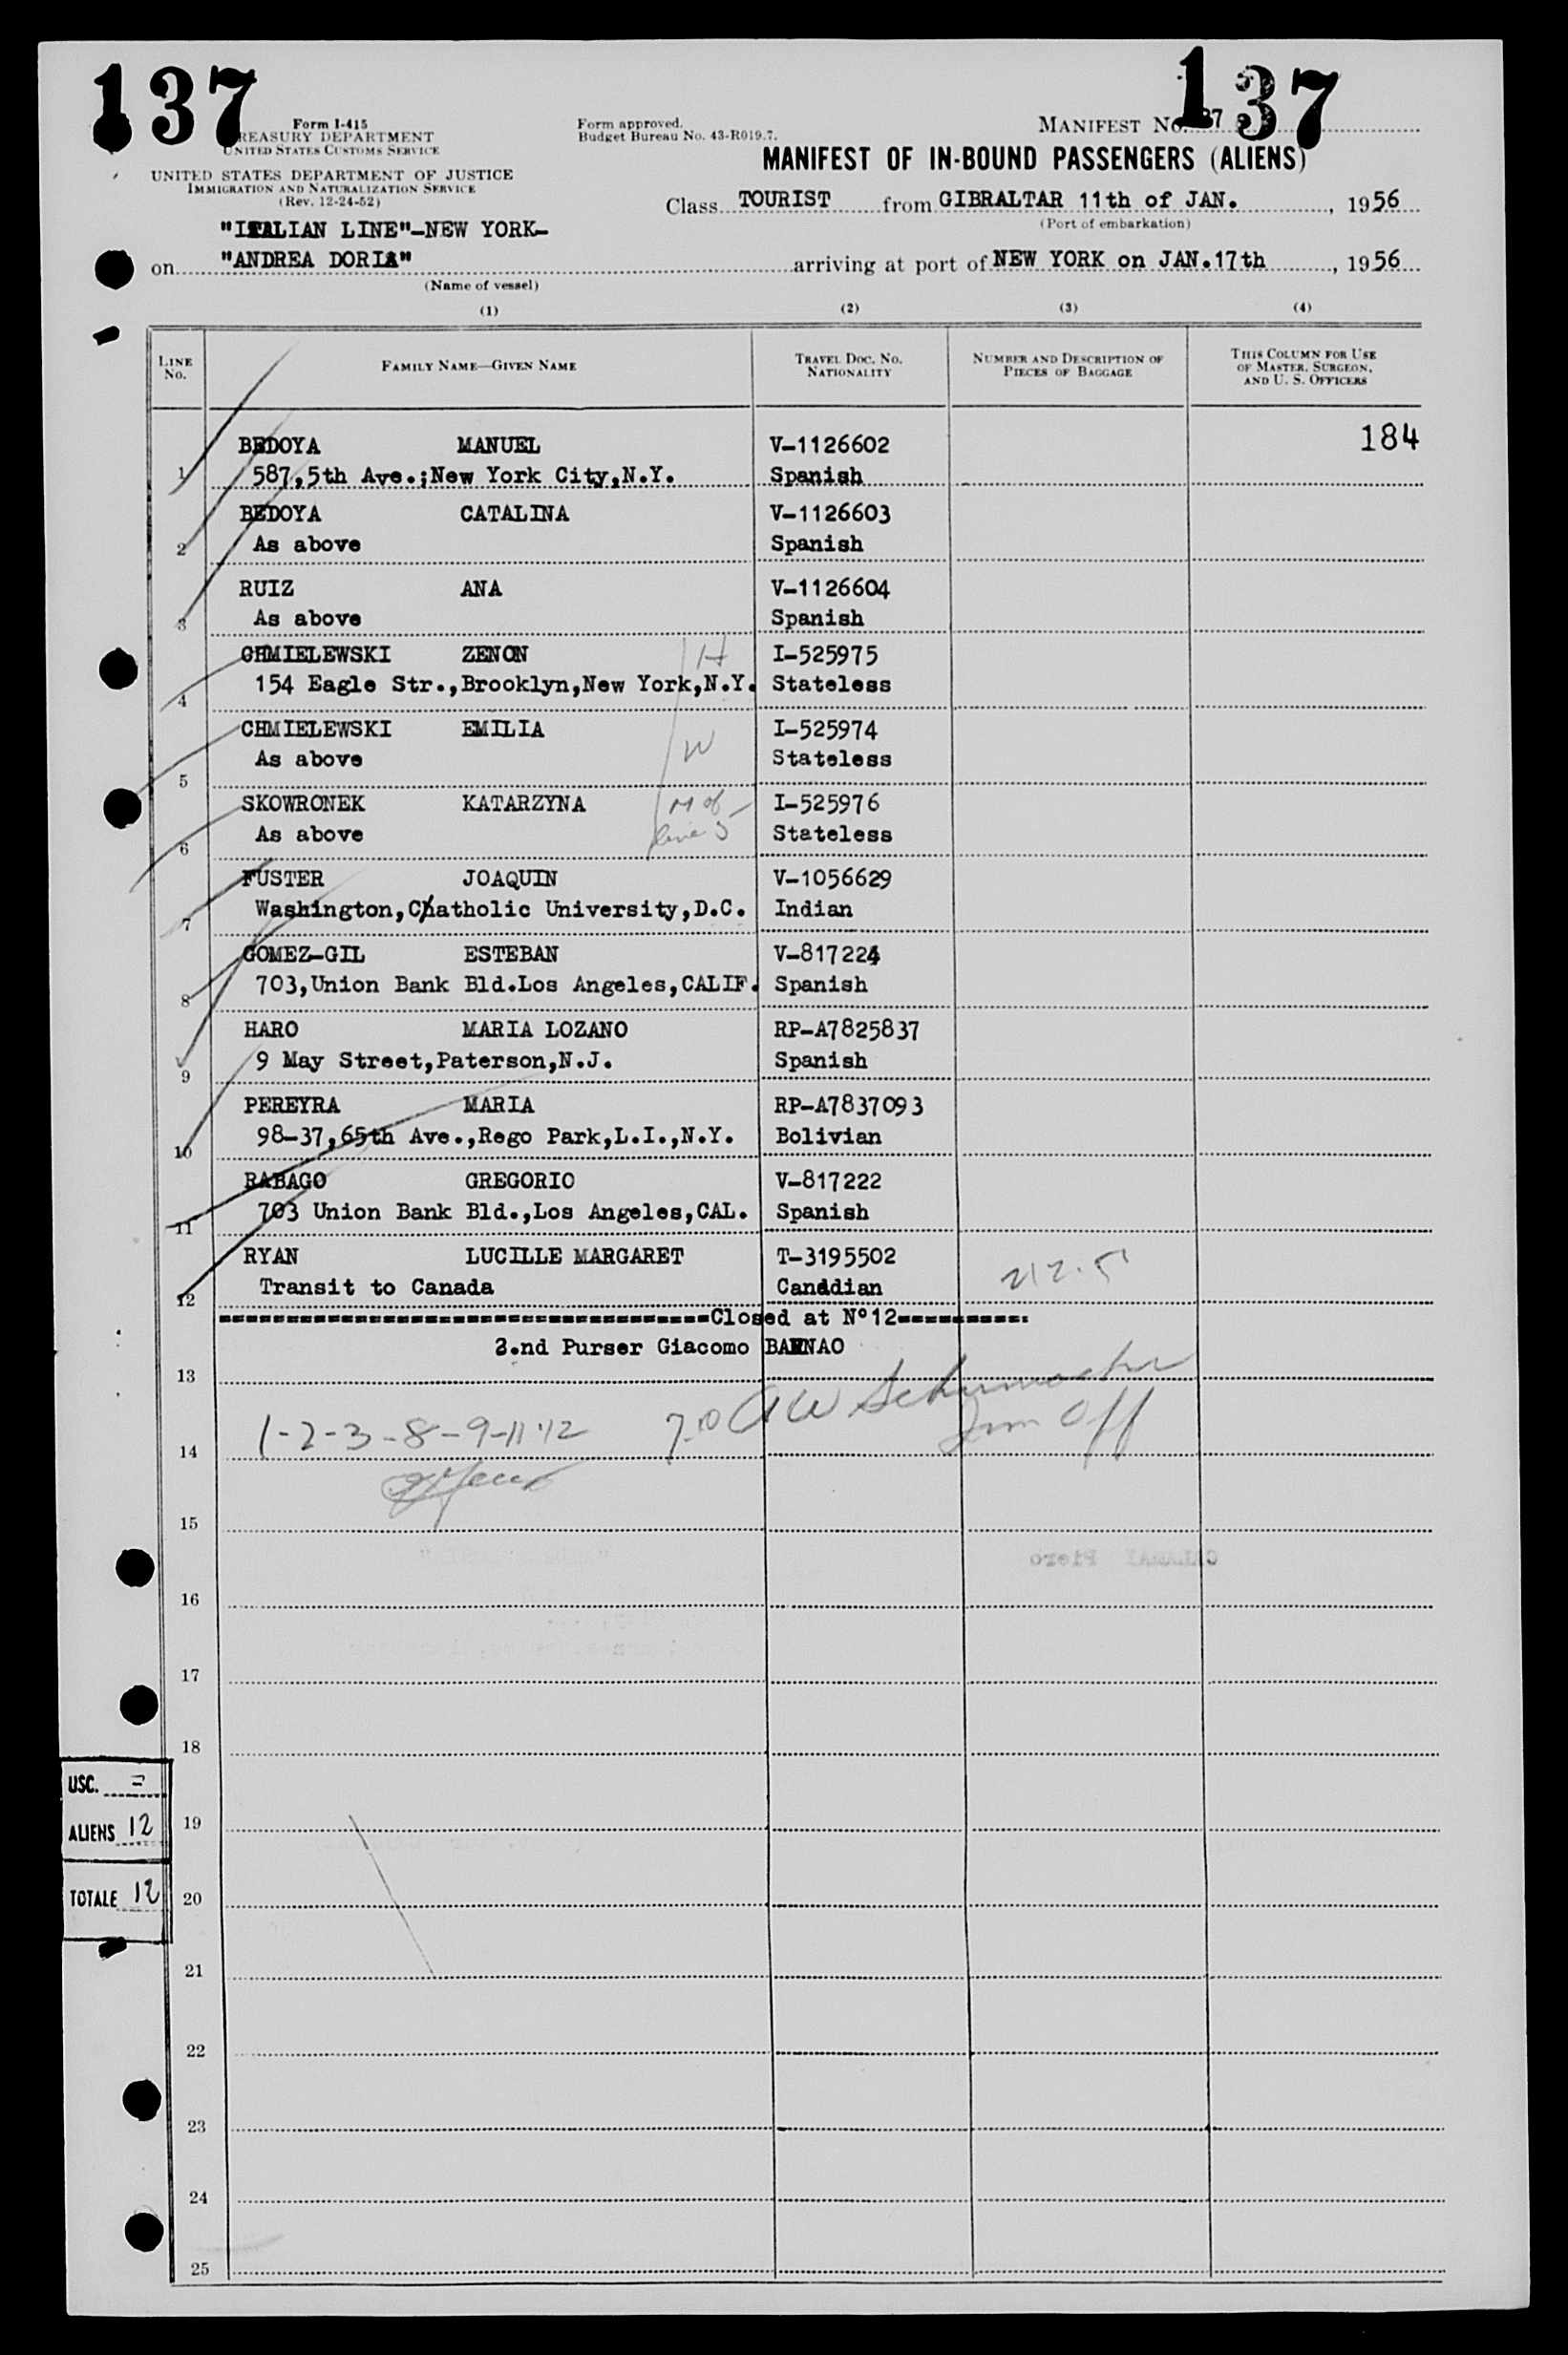 137
137
Form I-415
TREASURY DEPARTMENT
UNITED STATES CUSTOMS SERVICE
Form approved.
Budget Bureau No. 43-R019.7.
MANIFEST No. 37
MANIFEST OF IN-BOUND PASSENGERS (ALIENS)
UNITED STATES DEPARTMENT OF JUSTICE
IMMIGRATION AND NATURALIZATION SERVICE
(Rev. 12-24-52)
Class TOURIST from GIBRALTAR 11th of JAN., 1956
(Port of embarkation)
"ITALIAN LINE"-NEW YORK-
on "ANDREA DORIA" arriving at port of NEW YORK on JAN.17th, 1956
(Name of vessel)
(1) (2) (3) (4)
LINE No. FAMILY NAME—GIVEN NAME TRAVEL DOC. No. NATIONALITY NUMBER AND DESCRIPTION OF PIECES OF BAGGAGE THIS COLUMN FOR USE OF MASTER, SURGEON, AND U. S. OFFICERS
BEDOYA MANUEL V-1126602 184
1 587,5th Ave.;New York City,N.Y. Spanish
BEDOYA CATALINA V-1126603
2 As above Spanish
RUIZ ANA V-1126604
3 As above Spanish
CHMIELEWSKI ZENON H I-525975
4 154 Eagle Str.,Brooklyn,New York,N.Y. Stateless
CHMIELEWSKI EMILIA I-525974
5 As above W Stateless
SKOWRONEK KATARZYNA M of I-525976
6 As above line 5 Stateless
FUSTER JOAQUIN V-1056629
7 Washington,Chatholic University,D.C. Indian
GOMEZ-GIL ESTEBAN V-817224
8 703,Union Bank Bld.Los Angeles,CALIF. Spanish
HARO MARIA LOZANO RP-A7825837
9 9 May Street,Paterson,N.J. Spanish
PEREYRA MARIA RP-A7837093
10 98-37,65th Ave.,Rego Park,L.I.,N.Y. Bolivian
RABAGO GREGORIO V-817222
11 703 Union Bank Bld.,Los Angeles,CAL. Spanish
RYAN LUCILLE MARGARET T-3195502
12 Transit to Canada Canadian 212.5
====================================Closed at N°12==========
2.nd Purser Giacomo BARNAO
13
AW Schumacher
1-2-3-8-9-11-12
Imm Off
14
15
16
17
18
USC. =
ALIENS 12
19
TOTALE 12
20
21
22
23
24
25